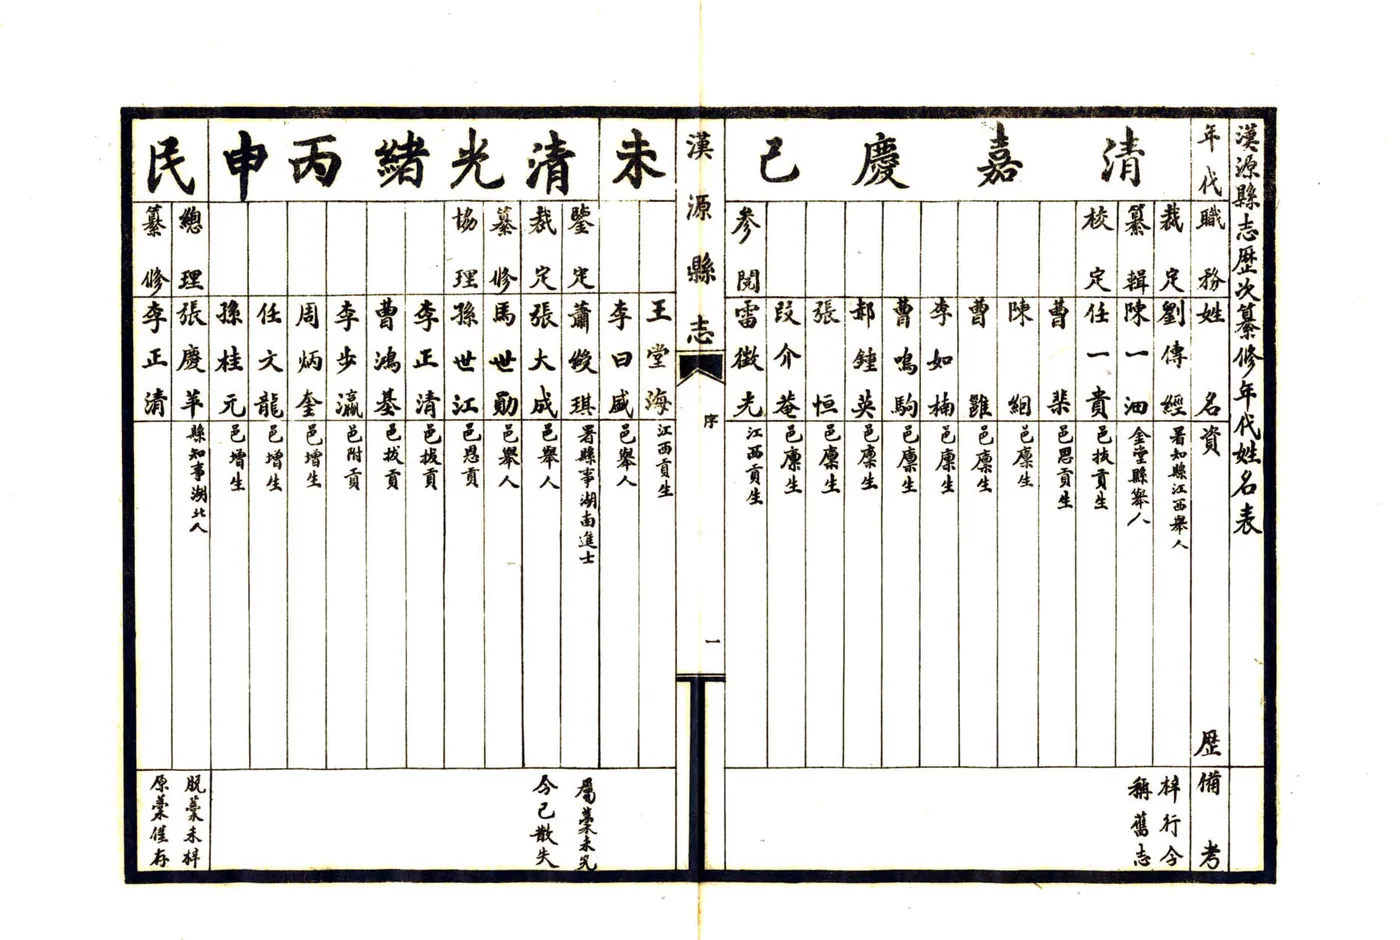 漢源縣志歷次纂修年代姓名表
年代
職務
姓名
資歷
備考
清嘉慶己
裁定
劉傳經
署知縣江西舉人
梓行今
纂輯
陳一沺
金堂縣舉人
稱舊志
校定
任一貴
邑拔貢生
曹棐
邑恩貢生
陳絪
邑廩生
曹雝
邑廩生
李如楠
邑廩生
曹鳴駒
邑廩生
郝鍾英
邑廩生
張恒
邑廩生
段介菴
邑廩生
參閱
雷徵光
江西貢生
漢源縣志
序
一
未
王堂海
江西貢生
李曰咸
邑舉人
清光緒丙申
鑒定
蕭綬琪
署縣事湖南進士
屬藁未完
裁定
張大成
邑舉人
今已散失
纂修
馬世勛
邑舉人
協理
孫世江
邑恩貢
李正清
邑拔貢
曹鴻基
邑拔貢
李步瀛
邑附貢
周炳奎
邑增生
任文龍
邑增生
孫桂元
邑增生
民
總理
張慶革
縣知事湖北人
脫藁未梓
纂修
李正清
原藁僅存